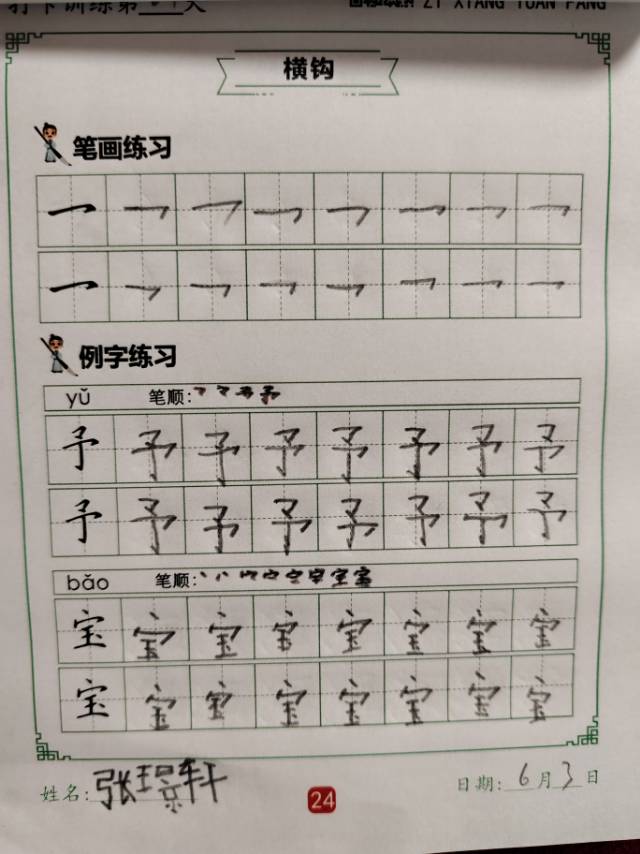 打卡训练第 天
ZI XIANG YUAN FANG
横钩
笔画练习
例字练习
yǔ 笔顺:
予 予 予 予 予 予 予 予
予 予 予 予 予 予 予 予
bǎo 笔顺:
宝 宝 宝 宝 宝 宝 宝 宝
宝 宝 宝 宝 宝 宝 宝 宝
姓名: 张璟轩
24
日期: 6月3日